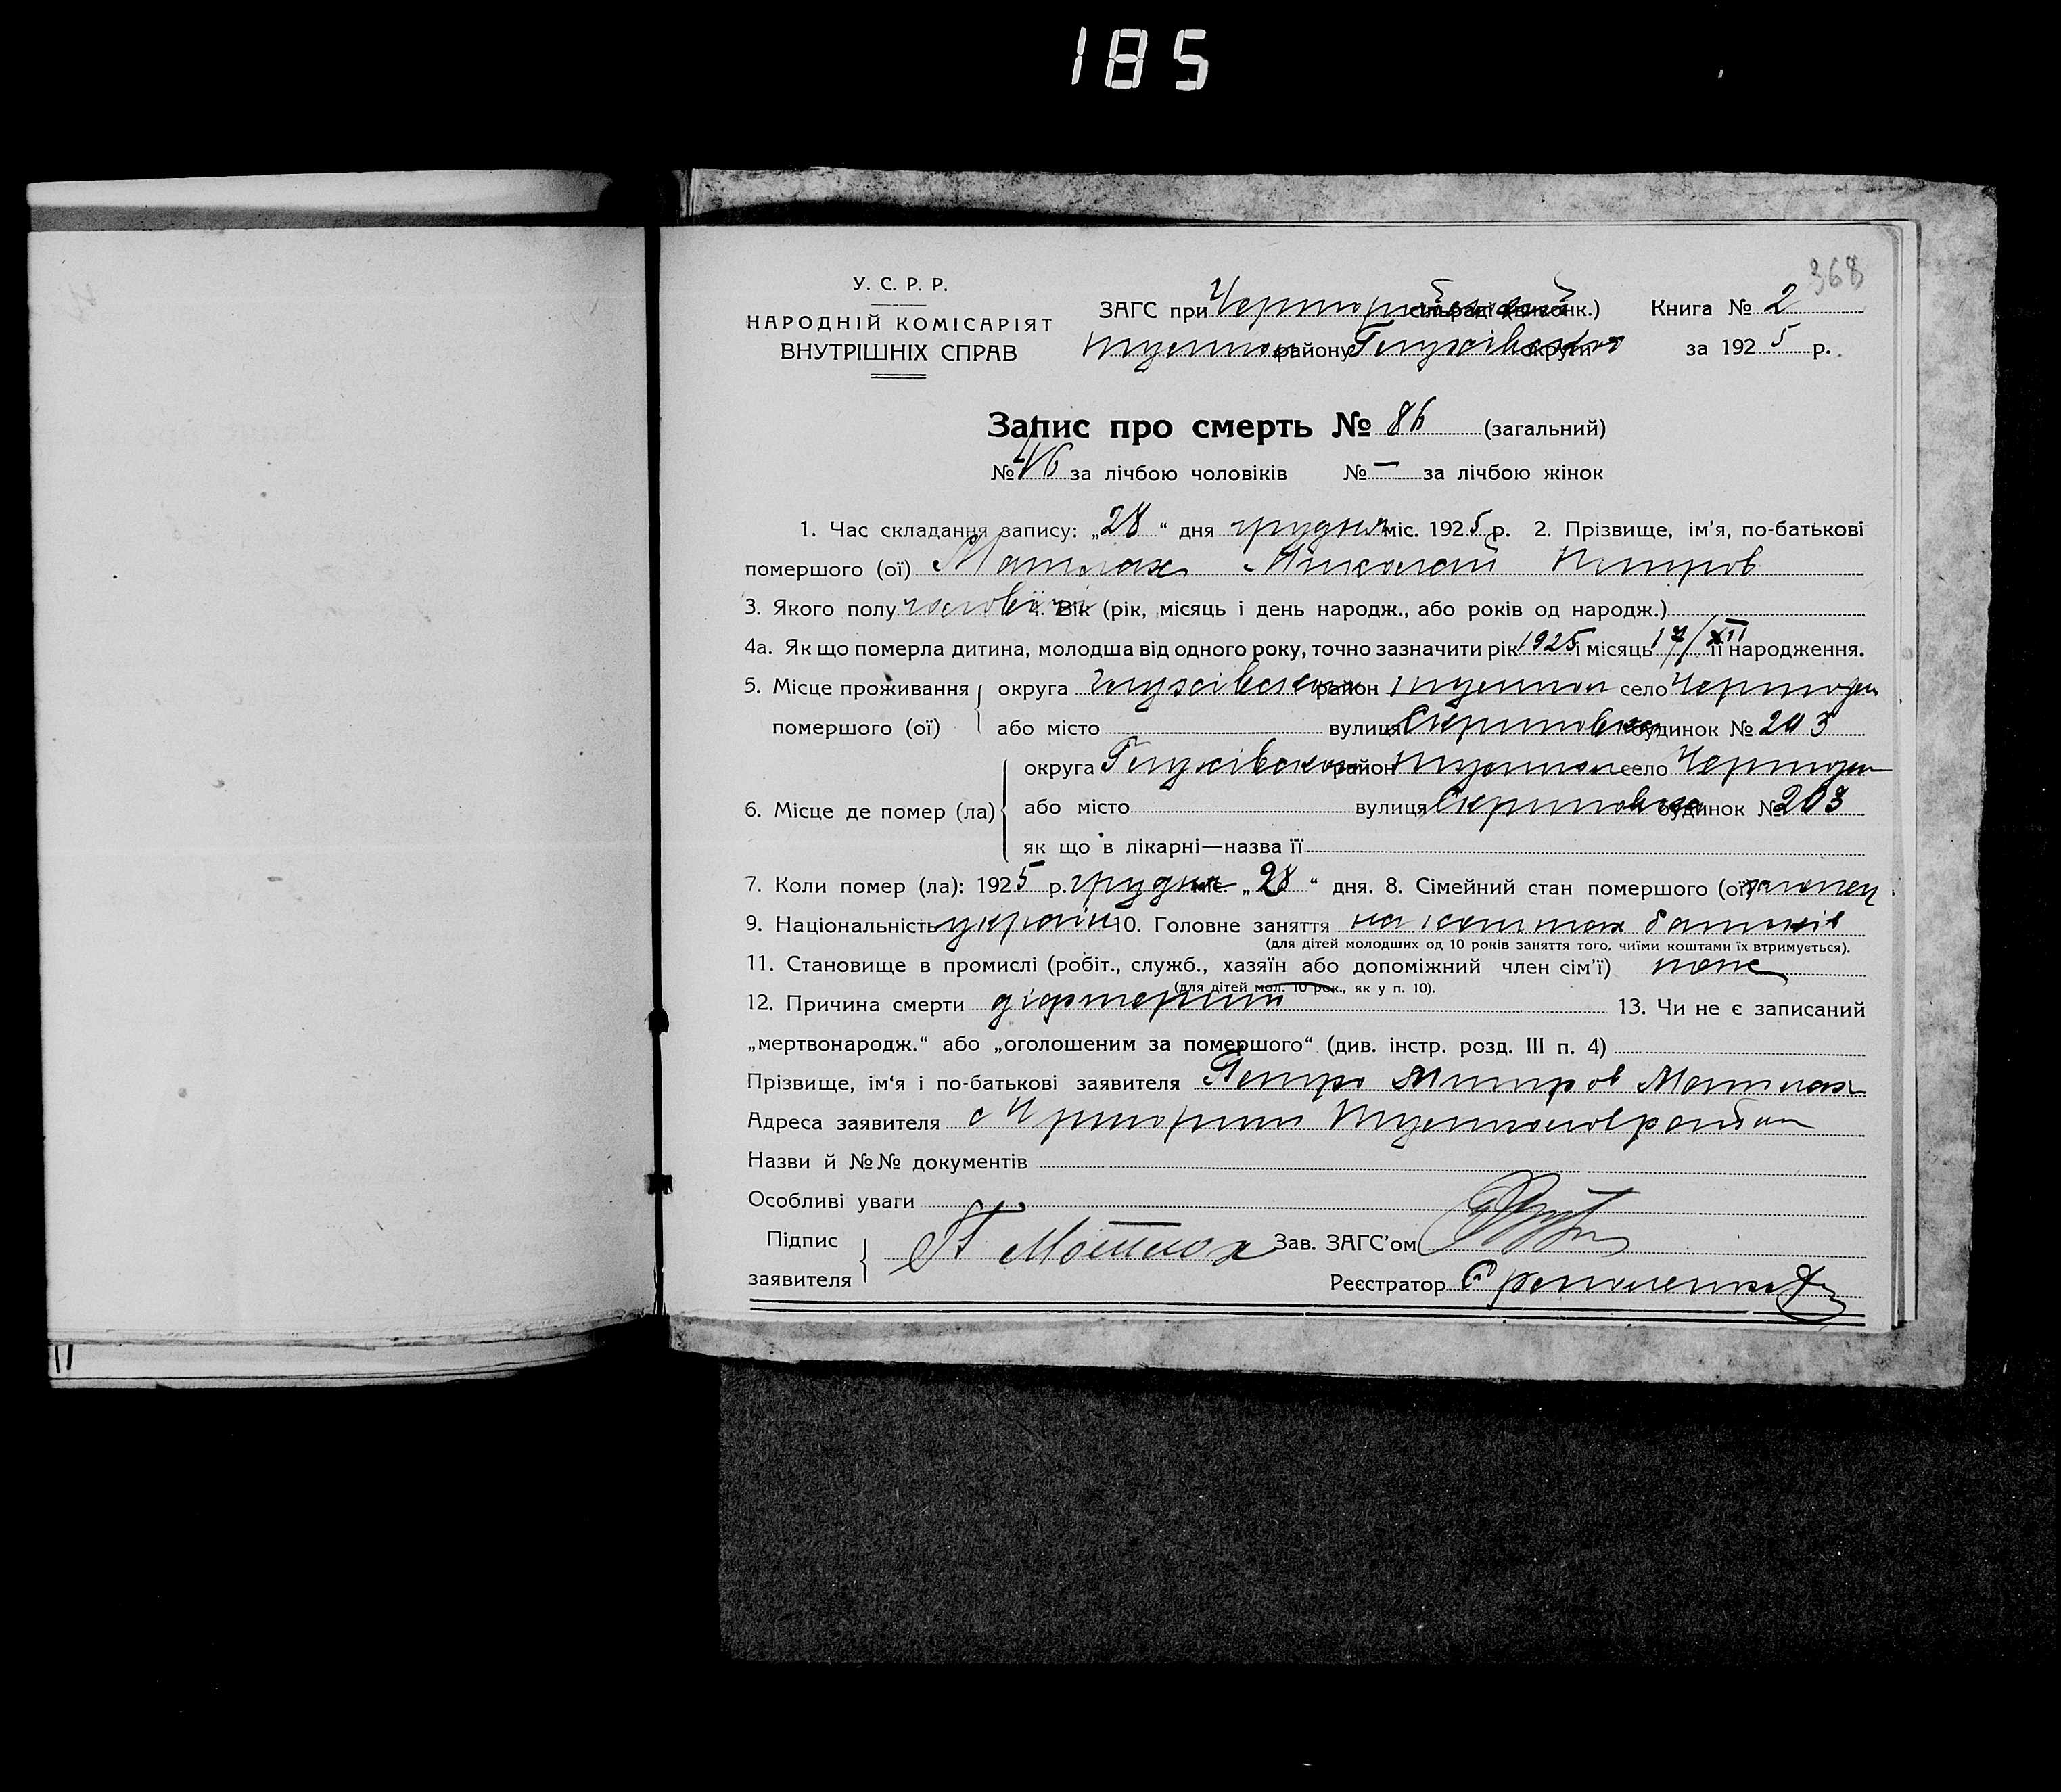 185
368
У. С. Р. Р.
НАРОДНІЙ КОМІСАРІЯТ
ВНУТРІШНІХ СПРАВ
ЗАГС при сільраді (виконк.) Книга № 2
району Глухівської округи за 1925 р.
Запис про смерть № 86 (загальний)
№ 46 за лічбою чоловіків № — за лічбою жінок
1. Час складання запису: „28“ дня грудня міс. 1925 р. 2. Прізвище, ім'я, по-батькові
помершого (ої) Матлах Миколай Петров
3. Якого полу чоловічої 4. Вік (рік, місяць і день народж., або років од народж.)
4а. Як що померла дитина, молодша від одного року, точно зазначити рік 1925 і місяць 17/XII її народження.
5. Місце проживання помершого (ої) округа Глухівська район село Чортори
або місто вулиця будинок № 203
6. Місце де помер (ла) округа Глухівська район село Чортори
або місто вулиця будинок № 203
як що в лікарні—назва її
7. Коли помер (ла): 1925 р. грудня міс. „28“ дня. 8. Сімейний стан помершого (ої)
9. Національність україн 10. Головне заняття на коштах батьків
(для дітей молодших од 10 років заняття того, чиїми коштами їх втримується).
11. Становище в промислі (робіт., служб., хазяїн або допоміжний член сім'ї)
(для дітей мол. 10 рок., як у п. 10).
12. Причина смерти 13. Чи не є записаний
„мертвонародж.“ або „оголошеним за помершого“ (див. інстр. розд. III п. 4)
Прізвище, ім'я і по-батькові заявителя Петро Матлах
Адреса заявителя с
Назви й №№ документів
Особливі уваги
Підпис заявителя П Матлах Зав. ЗАГС'ом
Реєстратор